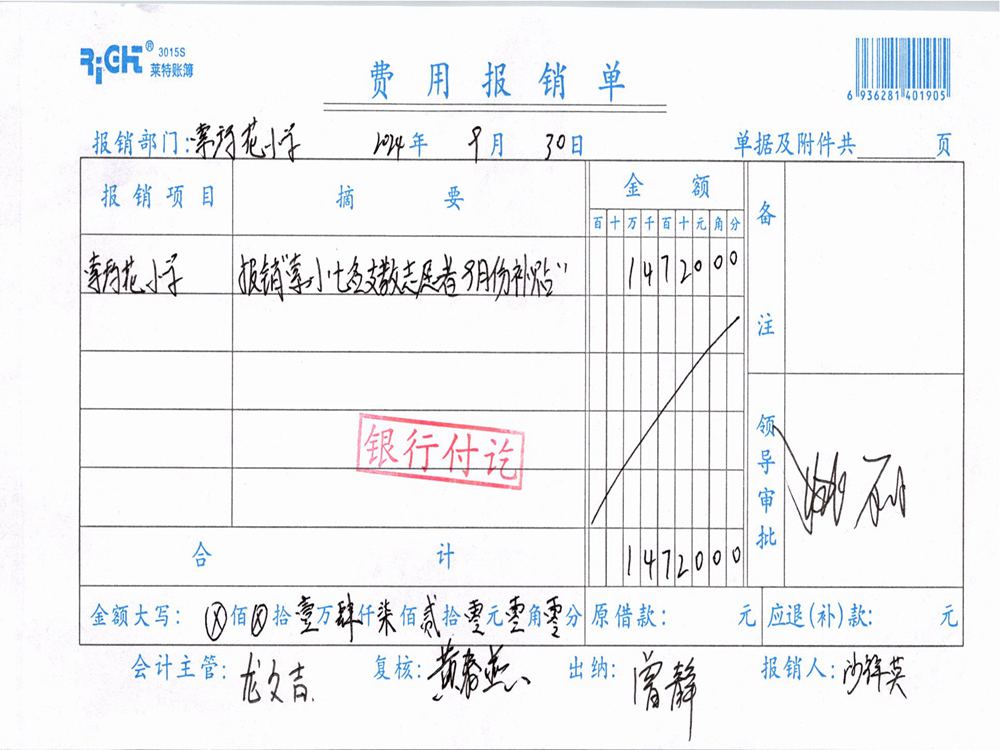 RiGHt® 3015S
莱特账簿
费用报销单
6 936281 401905
报销部门:索玛花小学 2024年 9月 30日 单据及附件共 页
报销项目 摘要 金额 备注
百十万千百十元角分
索玛花小学 报销"索小七名支教志愿者9月份补贴" 14720 00
银行付讫
领导审批
合计 14720 00
金额大写: ⊗佰⊗拾壹万肆仟柒佰贰拾零元零角零分 原借款: 元 应退(补)款: 元
会计主管: 龙文吉 复核: 黄春燕 出纳: 曾静 报销人: 沙锌英